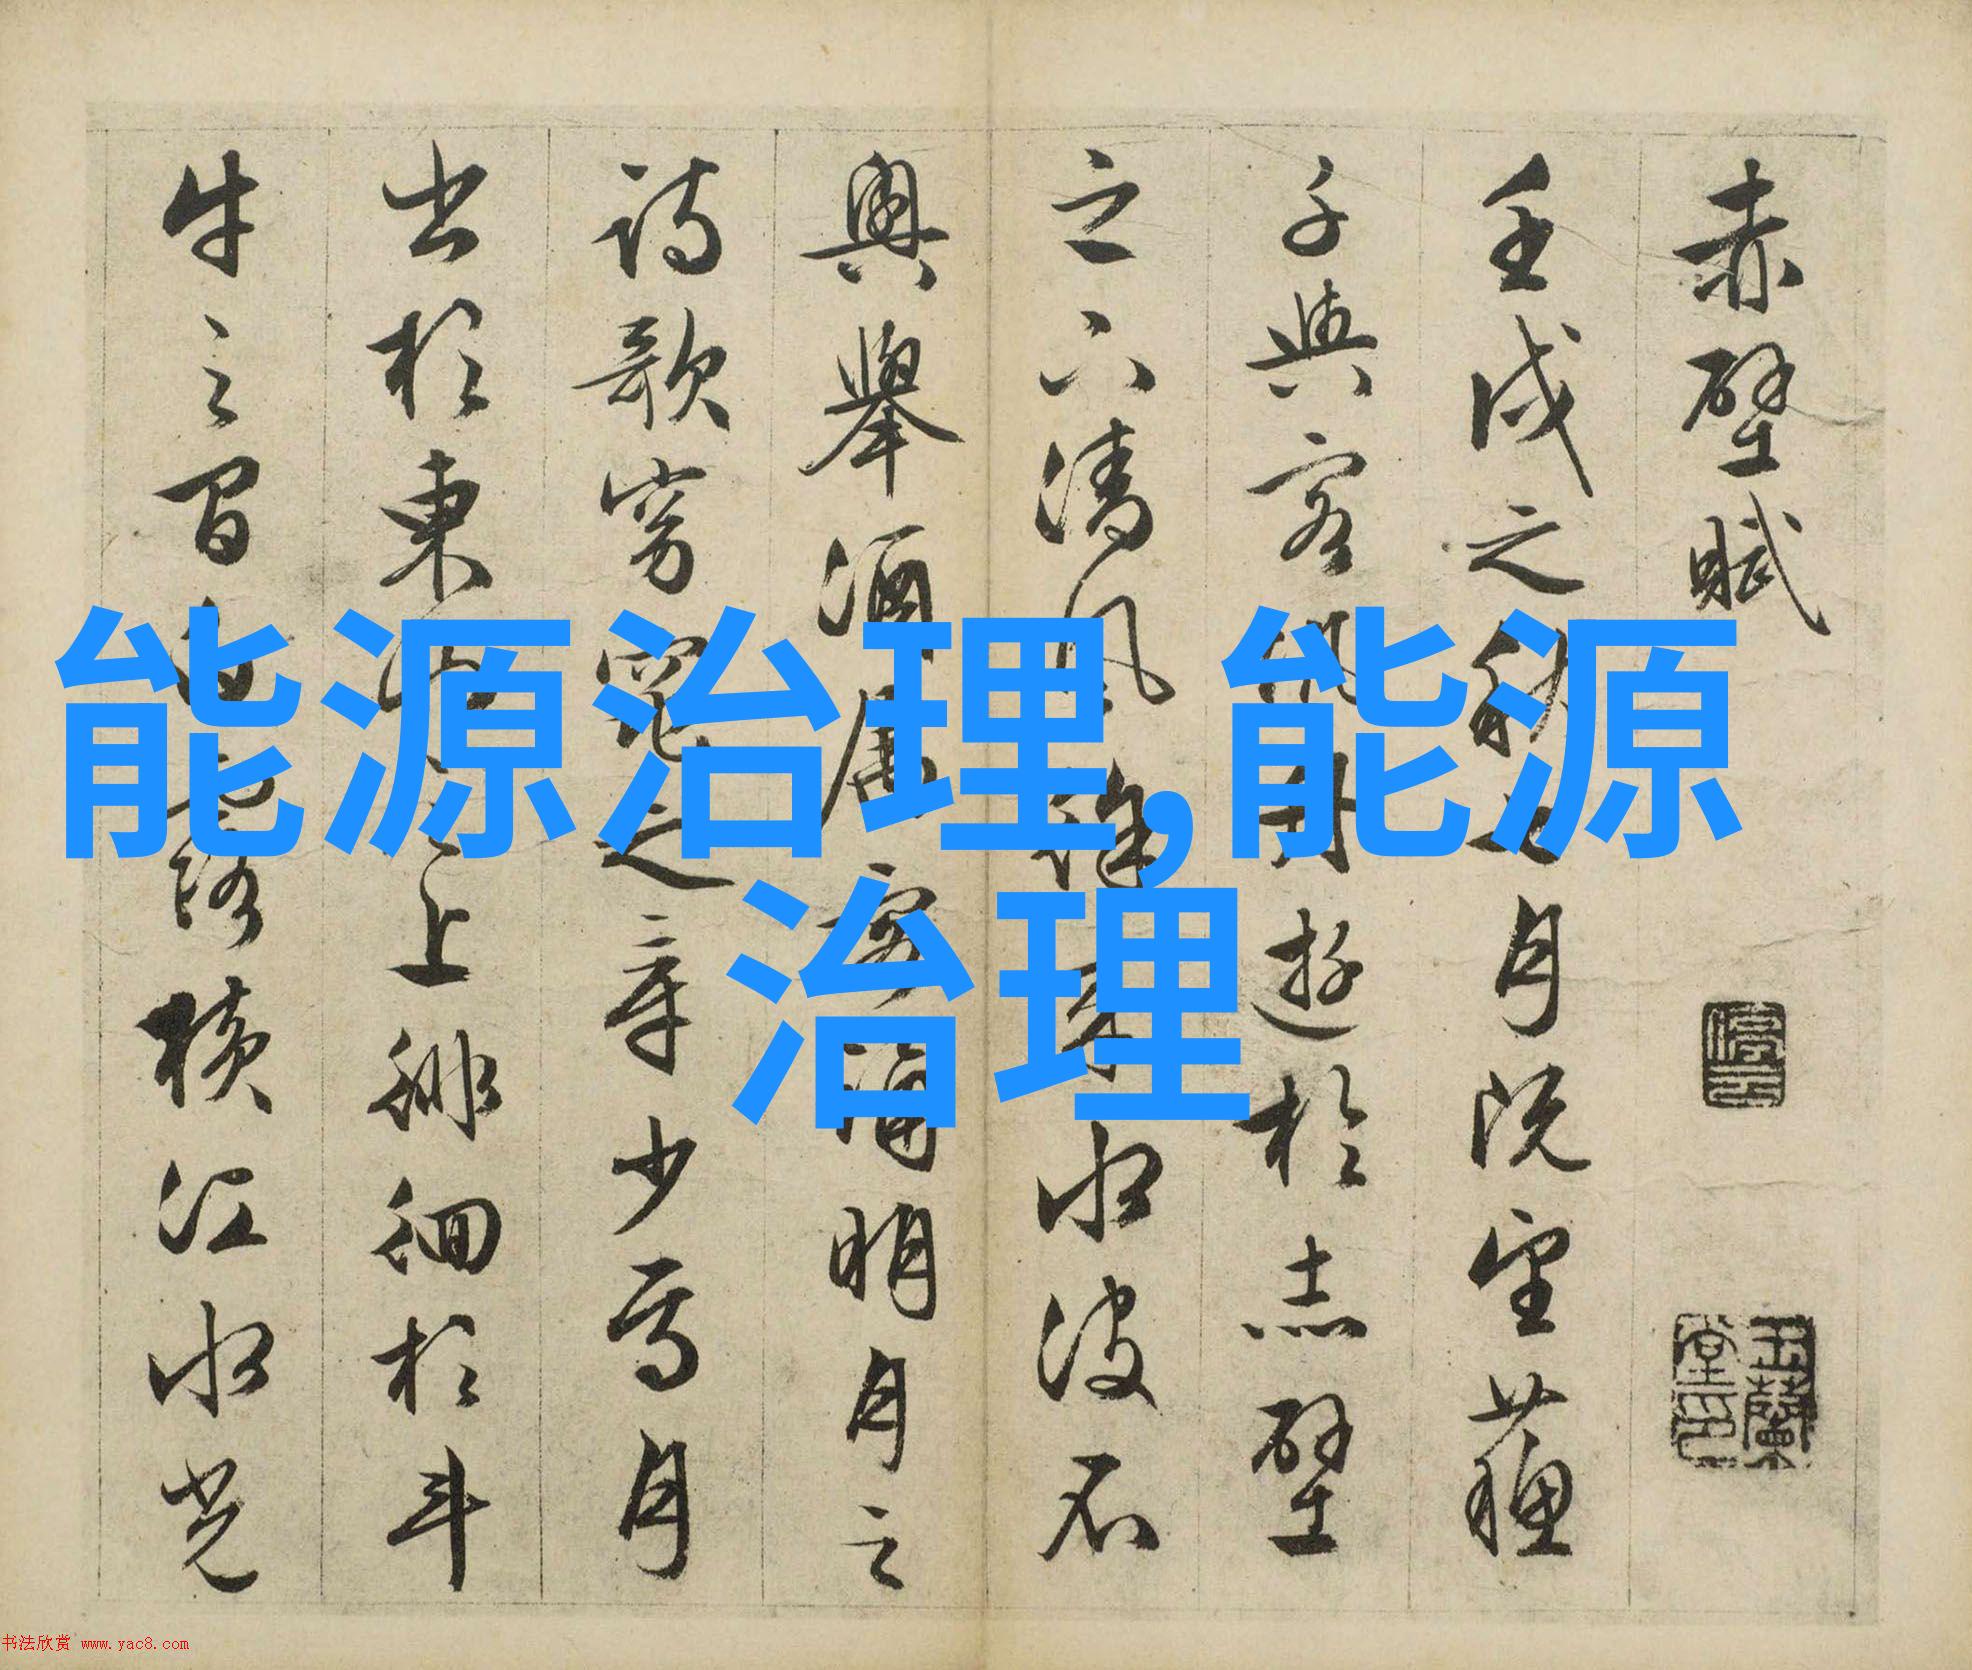 赤壁賦
壬戌之秋七月既望蘓
子與客泛舟遊於赤壁
之下清風徐來水波不
興舉酒屬客誦明月之
詩歌窈窕之章少焉月
出於東山之上徘徊於斗
牛之間白露橫江水光
停雲
玉蘭堂印
能源治理,能源
治理
书法欣赏 www.yac8.com